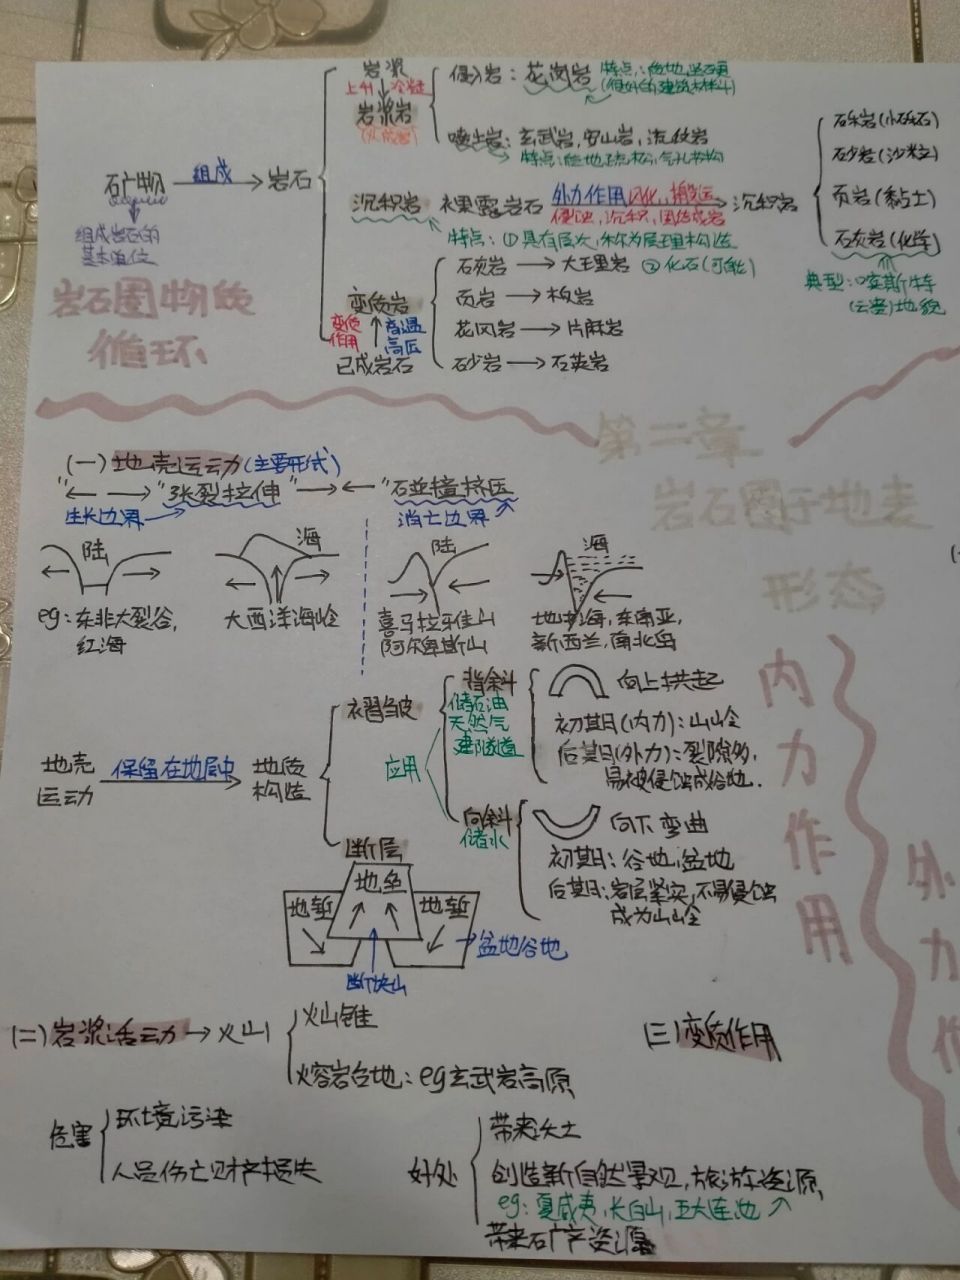 岩浆
上升 冷凝
岩浆岩
(火成岩)
侵入岩：花岗岩 特点：质地坚硬
(很好的建筑材料)
喷出岩：玄武岩，安山岩，流纹岩
特点：质地疏松，气孔构造
矿物 组成 岩石
组成岩石的
基本单位
沉积岩 裸露岩石 外力作用 风化、搬运 沉积岩
侵蚀、沉积、固结成岩
特点：①具有层次，称为层理构造
②化石(可能)
砾岩(小砾石)
砂岩(沙粒)
页岩(黏土)
石灰岩(化学)
典型：喀斯特
(云贵)地貌
变质岩
变质
作用
高温
高压
已成岩石
石灰岩 → 大理岩
页岩 → 板岩
花冈岩 → 片麻岩
砂岩 → 石英岩
岩石圈物质
循环
第二章
岩石圈于地表
形态
(一)地壳运动(主要形式)
"← →"张裂拉伸 "→ ←"碰撞挤压
生长边界 消亡边界
陆 海 陆 海
eg：东非大裂谷，
红海
大西洋海岭
喜马拉牙佳山
阿尔卑斯山
地中海，东南亚，
新西兰，南北岛
地壳
运动
保留在地层中
地质
构造
褶皱
应用
背斜
储石油
天然气
建隧道
向上拱起
初期(内力)：山岭
后期(外力)：裂隙多，
易被侵蚀成谷地.
向斜
储水
向下弯曲
初期：谷地，盆地
后期：岩层坚实，不易侵蚀
成为山岭
断层
地垒
地堑 地堑
盆地谷地
断块山
内力作用
外力作
(二)岩浆活动→火山
火山锥
熔岩台地：eg玄武岩高原
(三)变质作用
危害
环境污染
人员伤亡财产损失
好处
带来沃土
创造新自然景观，旅游资源
eg：夏威夷，长白山，五大连池
带来矿产资源